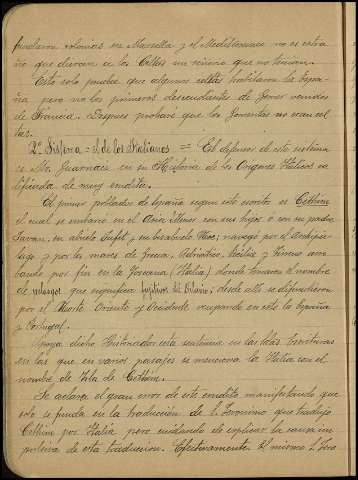 fundaron colonias en Marsella y el Mediterraneo no es estra-
ño que dieran a los Celtas un orígen que no tenian.
Esto solo prueba que algunos celtas habitaron la Espa-
ña pero no los primeros descendientes de Gomer venidos
de Francia. Despues probaré que los Gomeritas no eran cel-
tas.
2º Sistema = de los Italianos = El defensor de este sistema
es Mr. Guarnacci en su Historia de los Origenes Italicos ca-
lificada de muy erudita.
El primer poblador de España segun este escritor es Cethim
el cual se embarcó en el Asia Menor con sus hijos ó con su padre
Javan, su abuelo Jafet y su bisabuelo Noe; navegó por el Archipie-
lago y por los mares de Grecia, Adriatico, Sicilia y Tirreno arri-
bando por fin en la Toscana (Italia) donde tomaron el nombre
de que significa fugitivos del Diluvio; desde alli se difundieron
por el Norte Oriente y Occidente ocupando en este la España
y Portugal.
Apoya dicho Historiador esta sentencia en las Stas Escrituras
en las que en varios pasajes se menciona la Italia con el
nombre de Isla de Cethim.
Se aclara el gran error de este erudito manifestando que
solo se funda en la traducción de S. Jeronimo que tradujo
Cethim por Italia pero cuidando de esplicar la causa im-
pulsiva de esta traduccion. Efectivamente el mismo S. Jero